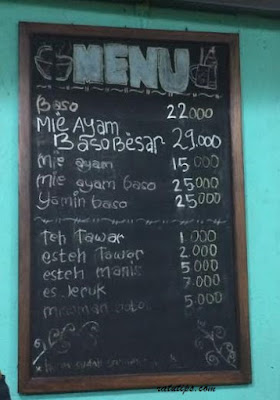 MENU
Baso 22.000
Mie Ayam
Baso Besar 29.000
mie ayam 15.000
mie ayam baso 25000
Yamin baso 25000
Teh Tawar 1.000
esteh Tawar 2.000
esteh manis 5.000
es jeruk 7.000
minuman botol 5.000
ratutips.com